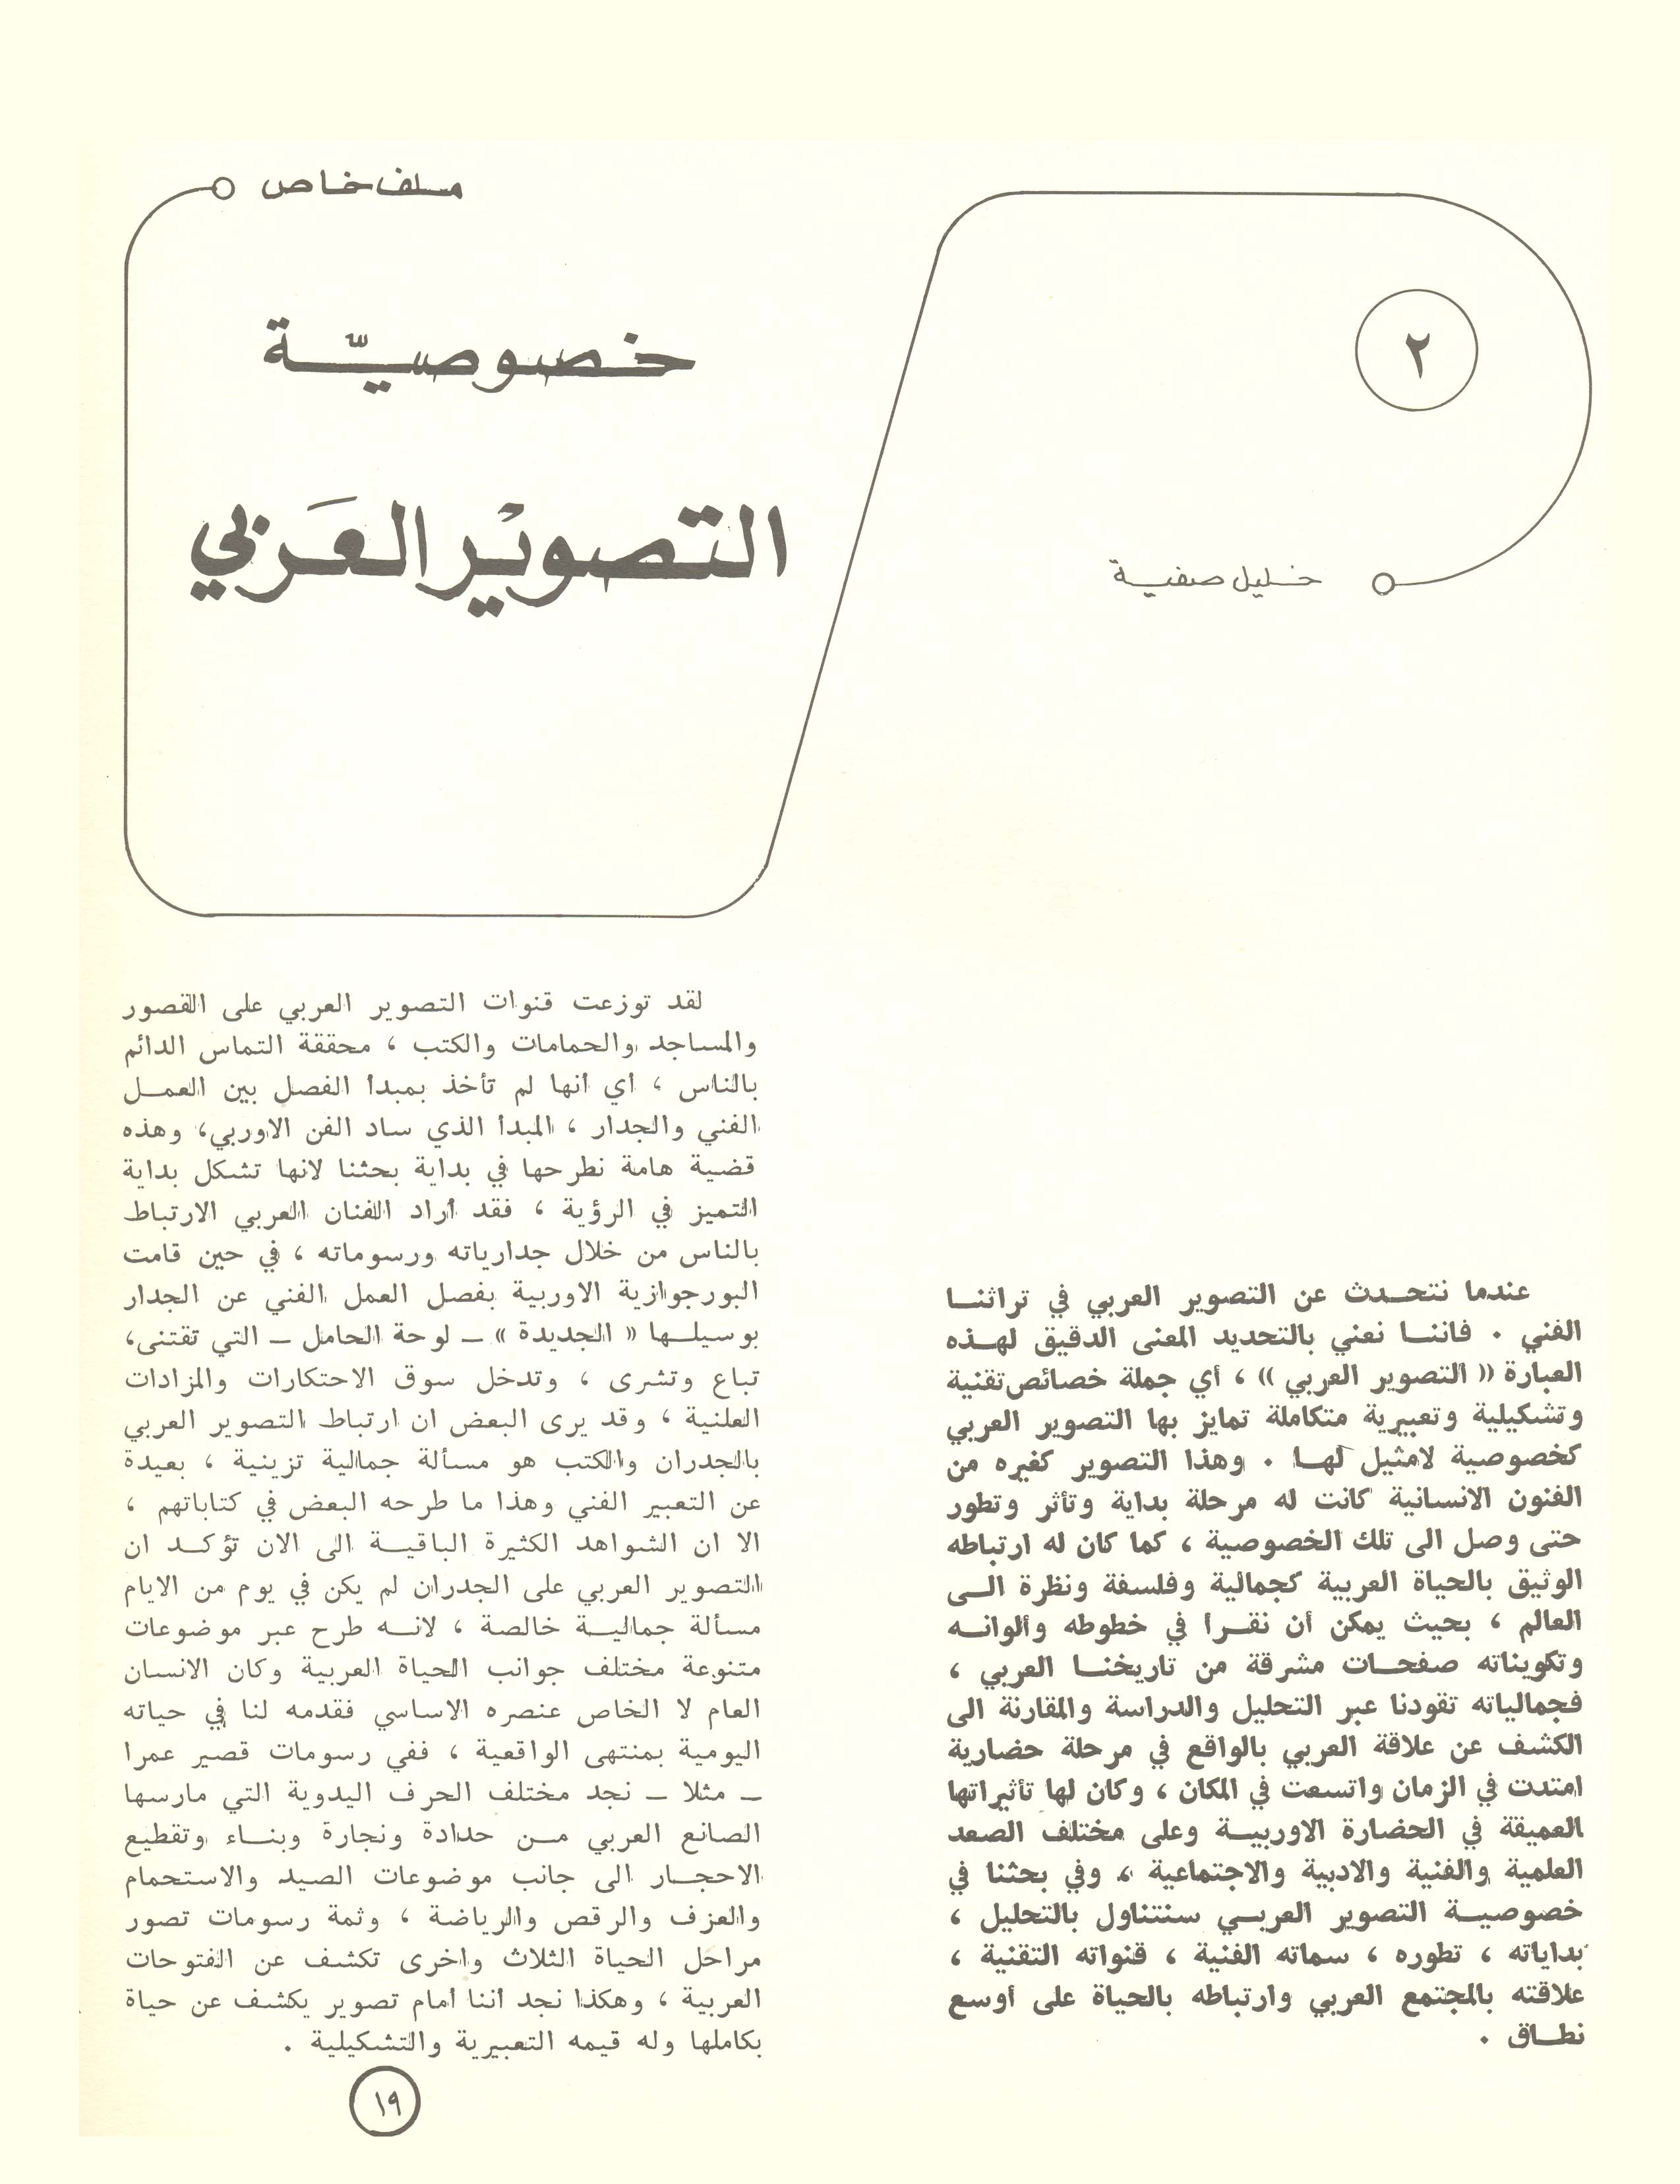 ملف خاص
٢
خصوصيّة
التصويْر العَربي
خليل صفية
عندما نتحدث عن التصوير العربي في تراثنا
الفني . فاننا نعني بالتحديد المعنى الدقيق لهذه
العبارة (( التصوير العربي )) ، أي جملة خصائص تقنية
وتشكيلية وتعبيرية متكاملة تمايز بها التصوير العربي
كخصوصية لامثيل لها . وهذا التصوير كغيره من
الفنون الانسانية كانت له مرحلة بداية وتأثر وتطور
حتى وصل الى تلك الخصوصية ، كما كان له ارتباطه
الوثيق بالحياة العربية كجمالية وفلسفة ونظرة الى
العالم ، بحيث يمكن أن نقرا في خطوطه وألوانه
وتكويناته صفحات مشرقة من تاريخنا العربي ،
فجمالياته تقودنا عبر التحليل والدراسة والمقارنة الى
الكشف عن علاقة العربي بالواقع في مرحلة حضارية
امتدت في الزمان واتسعت في المكان ، وكان لها تأثيراتها
العميقة في الحضارة الاوربية وعلى مختلف الصعد
العلمية والفنية والادبية والاجتماعية ، وفي بحثنا في
خصوصية التصوير العربي سنتناول بالتحليل ،
بداياته ، تطوره ، سماته الفنية ، قنواته التقنية ،
علاقته بالمجتمع العربي وارتباطه بالحياة على أوسع
نطاق .
لقد توزعت قنوات التصوير العربي على القصور
والمساجد والحمامات والكتب ، محققة التماس الدائم
بالناس ، اي انها لم تأخذ بمبدا الفصل بين العمل
الفني والجدار ، المبدأ الذي ساد الفن الاوربي، وهذه
قضية هامة نطرحها في بداية بحثنا لانها تشكل بداية
التميز في الرؤية ، فقد أراد الفنان العربي الارتباط
بالناس من خلال جدارياته ورسوماته ، في حين قامت
البورجوازية الاوربية بفصل العمل الفني عن الجدار
بوسيلها (( الجديدة )) ـ لوحة الحامل ـ التي تقتنى،
تباع وتشرى ، وتدخل سوق الاحتكارات والمزادات
العلنية ، وقد يرى البعض ان ارتباط التصوير العربي
بالجدران والكتب هو مسألة جمالية تزينية ، بعيدة
عن التعبير الفني وهذا ما طرحه البعض في كتاباتهم ،
الا ان الشواهد الكثيرة الباقية الى الان تؤكد ان
التصوير العربي على الجدران لم يكن في يوم من الايام
مسألة جمالية خالصة ، لانه طرح عبر موضوعات
متنوعة مختلف جوانب الحياة العربية وكان الانسان
العام لا الخاص عنصره الاساسي فقدمه لنا في حياته
اليومية بمنتهى الواقعية ، ففي رسومات قصير عمرا
ـ مثلا ـ نجد مختلف الحرف اليدوية التي مارسها
الصانع العربي من حدادة ونجارة وبناء وتقطيع
الاحجار الى جانب موضوعات الصيد والاستحمام
والعزف والرقص والرياضة ، وثمة رسومات تصور
مراحل الحياة الثلاث واخرى تكشف عن الفتوحات
العربية ، وهكذا نجد اننا امام تصوير يكشف عن حياة
بكاملها وله قيمه التعبيرية والتشكيلية .
١٩